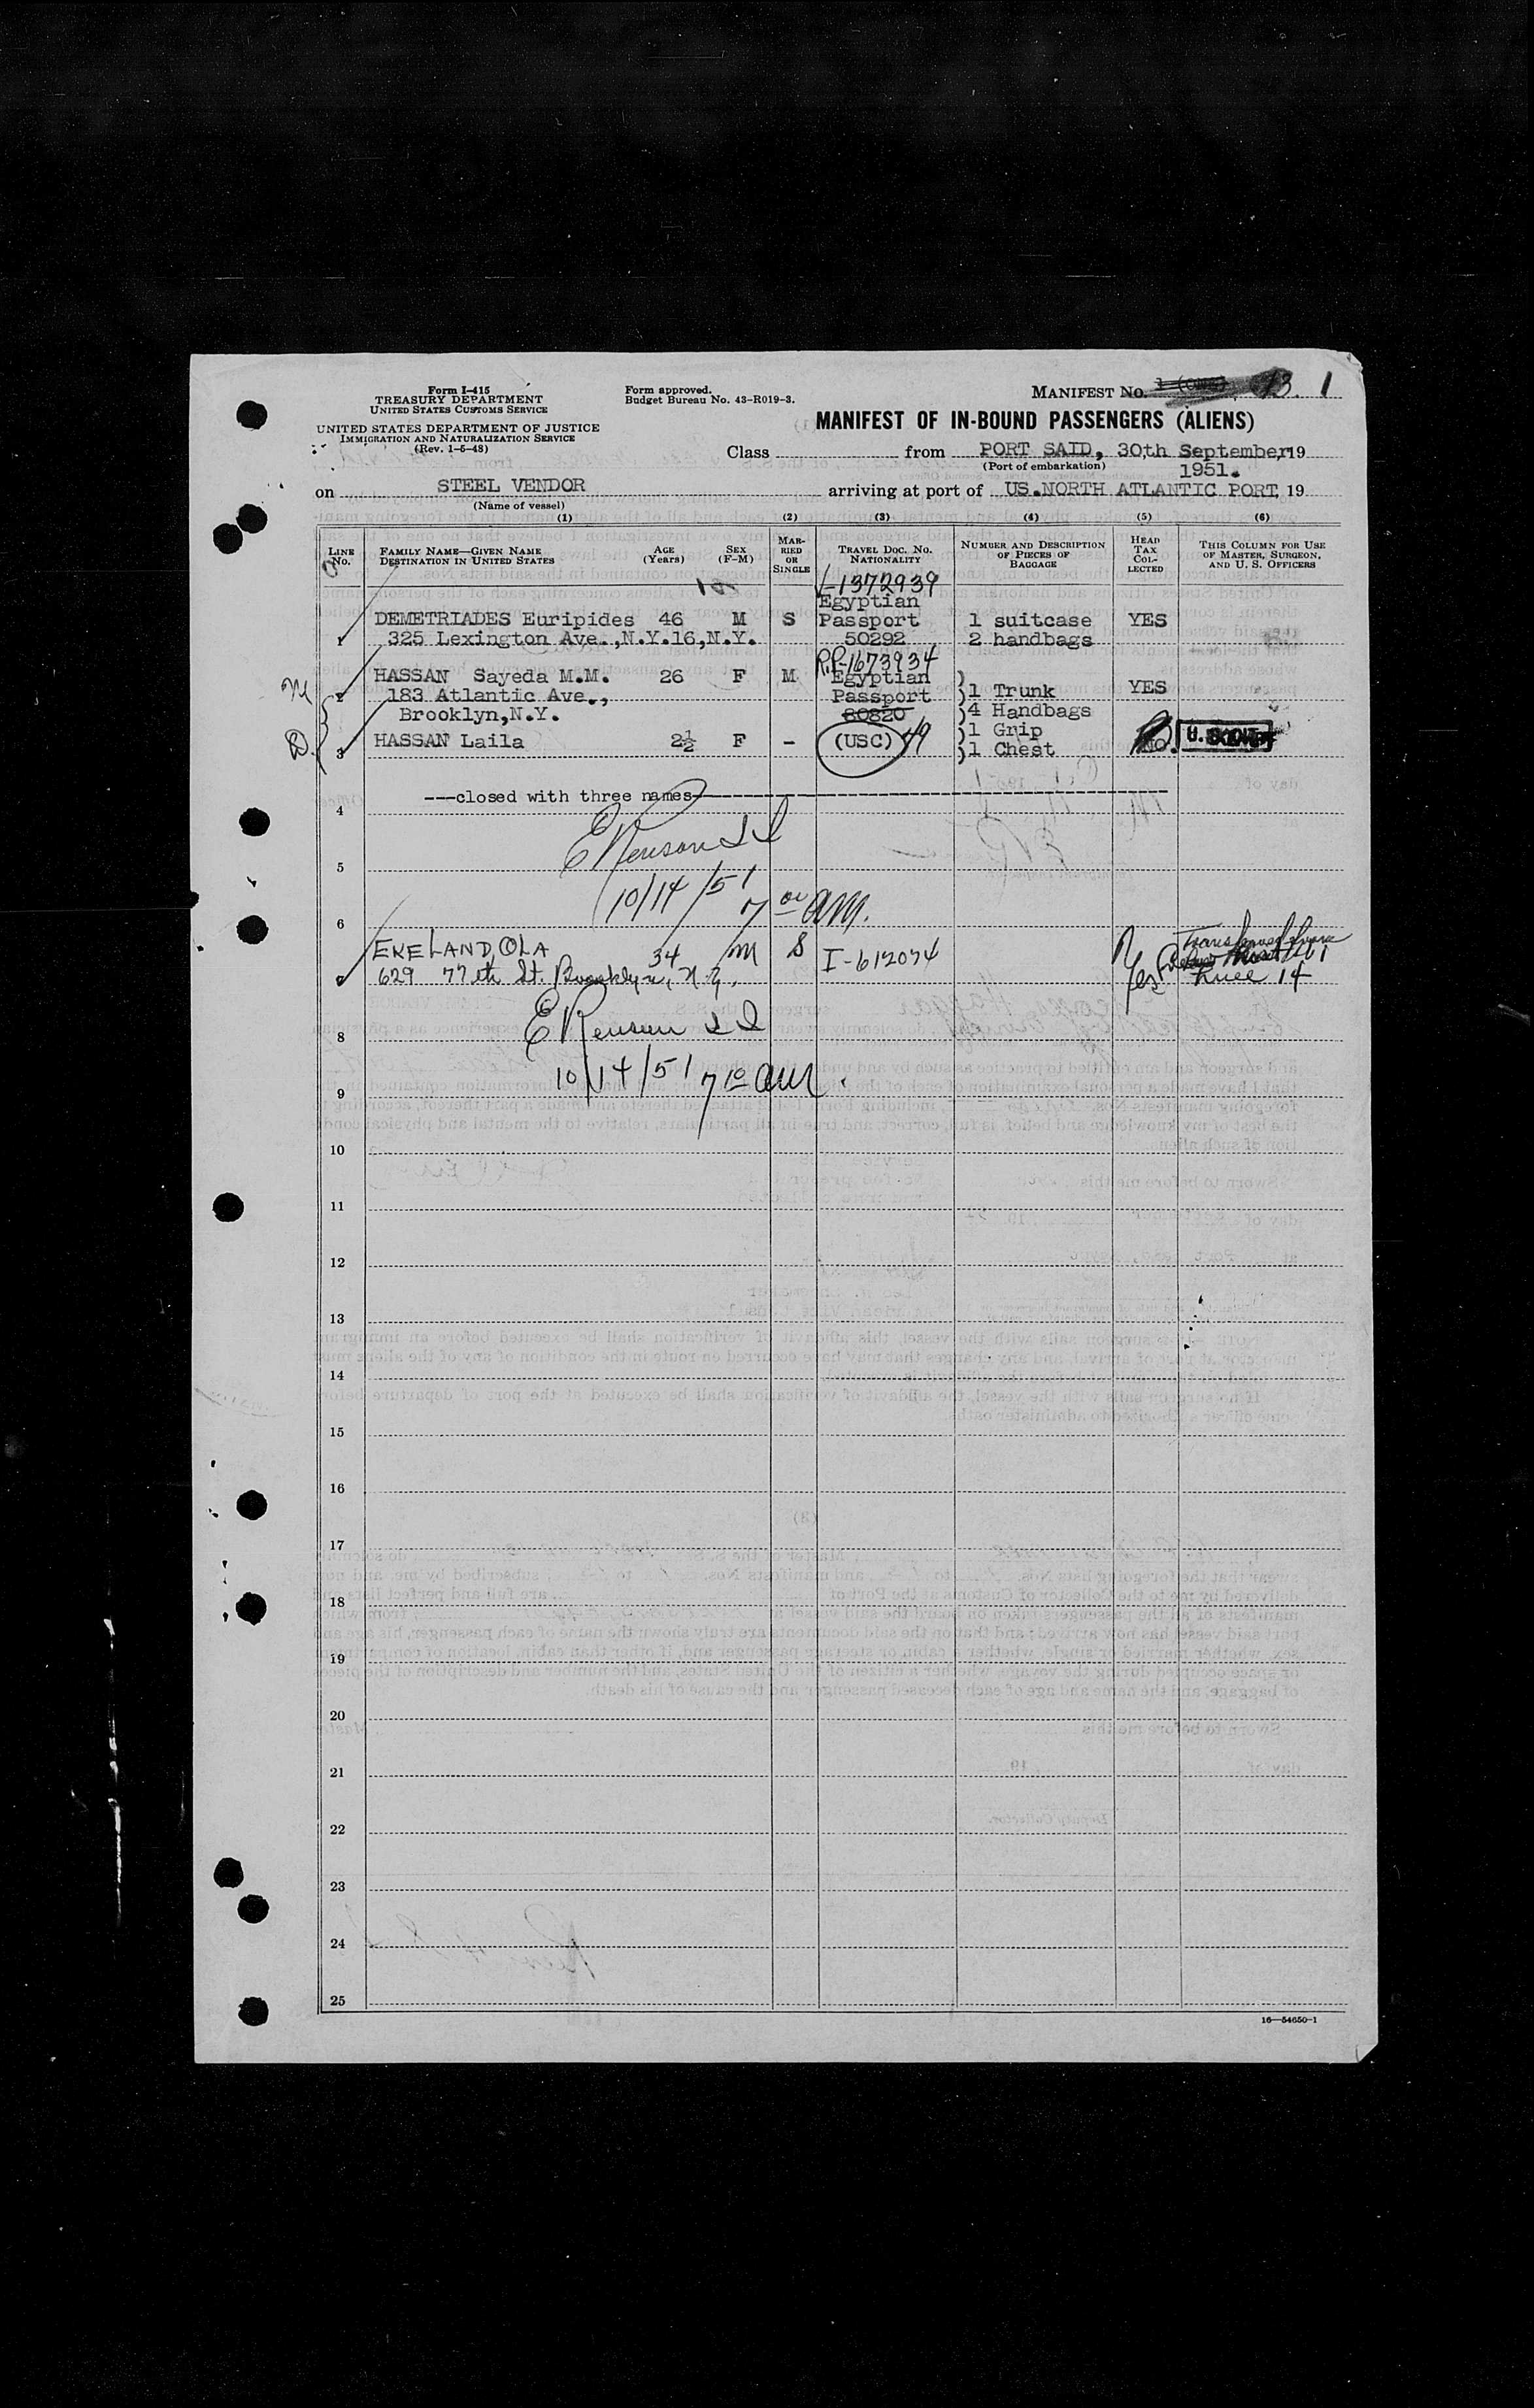 Form I-415
TREASURY DEPARTMENT
UNITED STATES CUSTOMS SERVICE
UNITED STATES DEPARTMENT OF JUSTICE
IMMIGRATION AND NATURALIZATION SERVICE
(Rev. 1-5-48)
Form approved.
Budget Bureau No. 43-R019-3.
MANIFEST No. 1 (ONE) 13. 1
MANIFEST OF IN-BOUND PASSENGERS (ALIENS)
Class from PORT SAID, 30th September, 19
(Port of embarkation) 1951.
on STEEL VENDOR arriving at port of US.NORTH ATLANTIC PORT 19
(Name of vessel)
(1) (2) (3) (4) (5) (6)
LINE No. FAMILY NAME—GIVEN NAME DESTINATION IN UNITED STATES AGE (Years) SEX (F-M) MARRIED OR SINGLE TRAVEL DOC. NO. NATIONALITY NUMBER AND DESCRIPTION OF PIECES OF BAGGAGE HEAD TAX COLLECTED THIS COLUMN FOR USE OF MASTER, SURGEON, AND U. S. OFFICERS
-1372939
Egyptian
DEMETRIADES Euripides 46 M S Passport 1 suitcase YES
1 325 Lexington Ave.,N.Y.16,N.Y. 50292 2 handbags
R.P-1673934
HASSAN Sayeda M.M. 26 F M Egyptian
2 183 Atlantic Ave., Passport )1 Trunk YES
Brooklyn,N.Y. 80820 )4 Handbags
)1 Grip
3 HASSAN Laila 2½ F - (USC) 49 )1 Chest NO.
4 ---closed with three names---
5
10/14/51 7 00 AM.
6
EKELAND, OLA 34 M S I-612074
629 77th St. Brooklyn, N.Y. Yes
8
10/14/51 7 10 AM.
9
10
11
12
13
14
15
16
17
18
19
20
21
22
23
24
25
16—54650-1